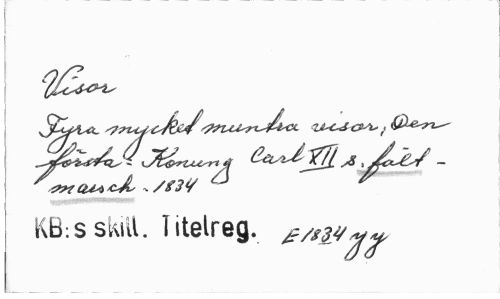 Visor
Fyra mycket muntra visor, Den
första: Konung Carl XII s. fält-
marsch. 1834
KB:s skill. Titelreg. E 1834 yy